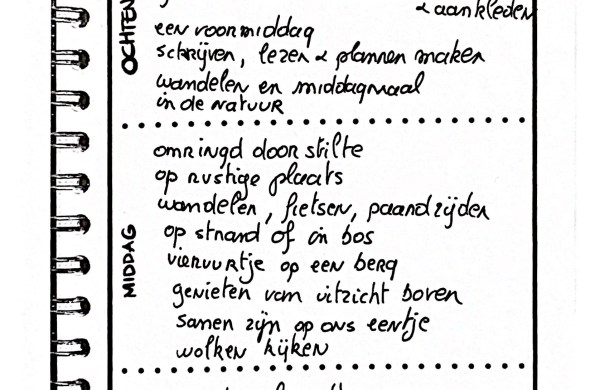 & aankleden
OCHTEN
een voormiddag
schrijven, lezen & plannen maken
wandelen en middagmaal
in de natuur
MIDDAG
omringd door stilte
op rustige plaats
wandelen, fietsen, paardrijden
op strand of in bos
vieruurtje op een berg
genieten van uitzicht boven
samen zijn op ons eentje
wolken kijken